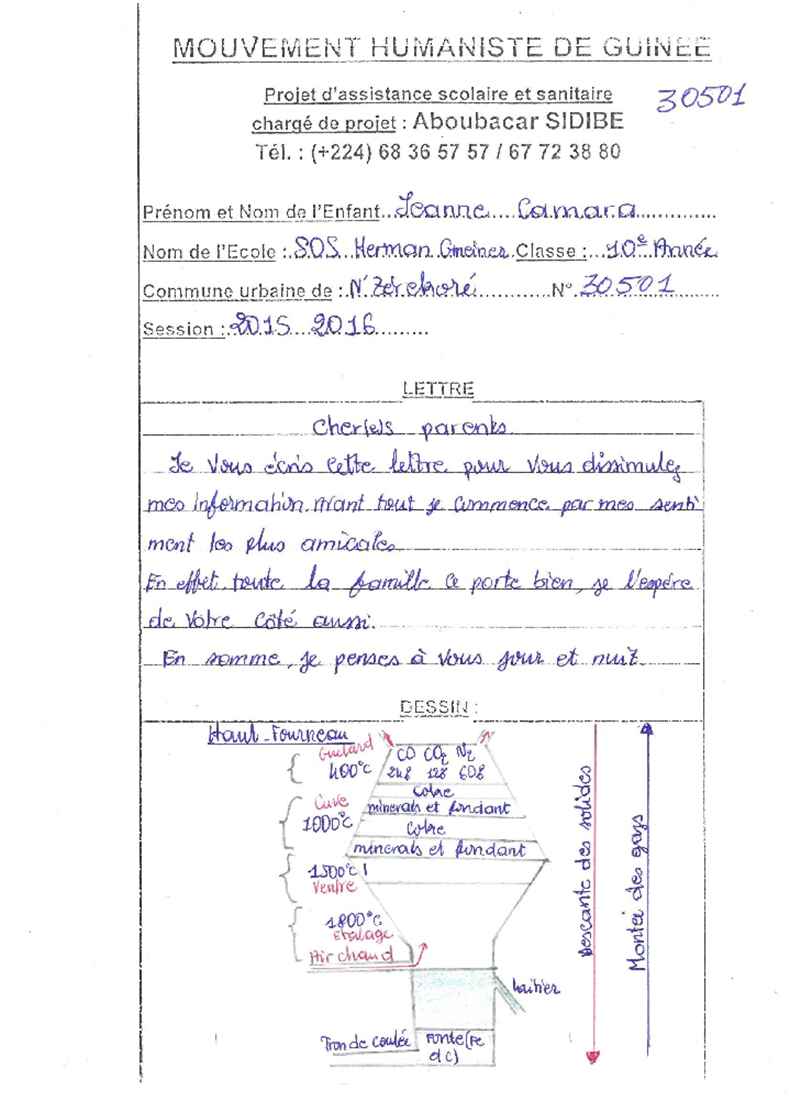 MOUVEMENT HUMANISTE DE GUINEE
Projet d'assistance scolaire et sanitaire
30501
chargé de projet : Aboubacar SIDIBE
Tél. : (+224) 68 36 57 57 / 67 72 38 80
Prénom et Nom de l'Enfant..Jeanne....Camara..............
Nom de l'Ecole :.SOS..Herman.Gmeiner.Classe :...10e.Année
Commune urbaine de :.N'Zérékoré............N°.30501.......
Session :.2015....2016.........
LETTRE
Cher(e)s parents
Je vous écris cette lettre pour vous dissimulez
mes information. Avant tout je commence par mes senti
ment les plus amicales
En effet toute la famille ce porte bien, je l'espére
de votre côté aussi.
En somme, je penses à vous jour et nuit
DESSIN :
Haut-Fourneau
Guelard
400°C
CO CO2 N2
24% 12% 60%
Cuve
1000°C
Cokre
minerals et fondant
Cokre
minerals et fondant
1500°C
Ventre
1800°C
Etalage
Air chaud
laitier
Tron de coulée
Fonte(Fe
et C)
Descante des solides
Montei des gazs